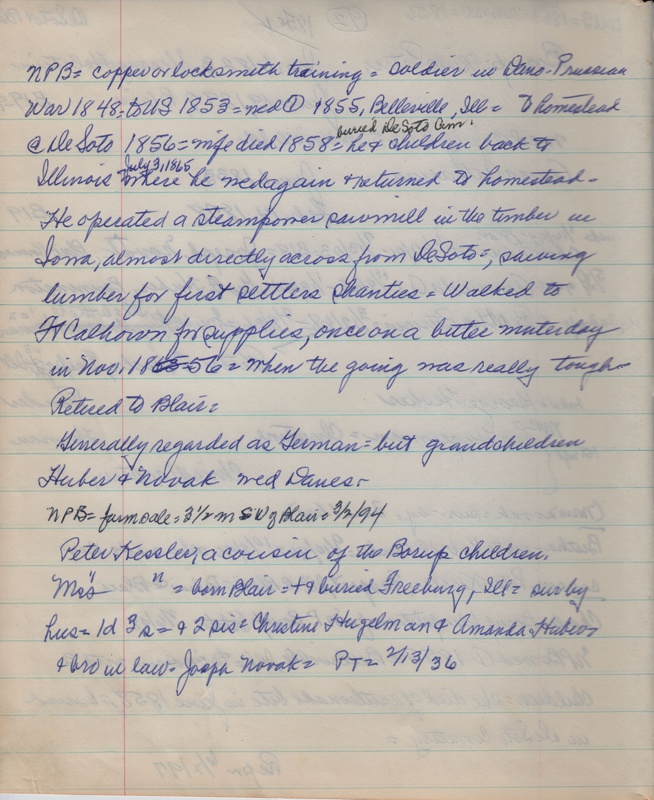 NPB = copper or locksmith training = soldier in Dano-Prussian
War 1848-to US 1853 = wed ① 1855, Belleville, Ill = To homestead
buried DeSoto Cem.
@ DeSoto 1856 = wife died 1858 = he & children back to
July 3, 1865
Illinois where he wed again & returned to homestead -
He operated a steampower sawmill in the timber in
Iowa, almost directly across from DeSoto =, sawing
lumber for first settlers shanties = Walked to
Ft Calhoun for supplies, once on a bitter winter day
in Nov. 1856 = when the going was really tough -
Retired to Blair =
Generally regarded as German = but grandchildren
Huber & Novak wed Danes -
NPB = farm sale = 3 1/2 m SW of Blair = 3/2/94
Peter Kessler, a cousin of the Borup children.
"Mrs " " = born Blair = + & buried Freeburg, Ill = sur by
hus = 1d 3s = & 2 sis = Christine Hugelman & Amanda Huber
& bro in law = Joseph Novak = PT = 2/13/36